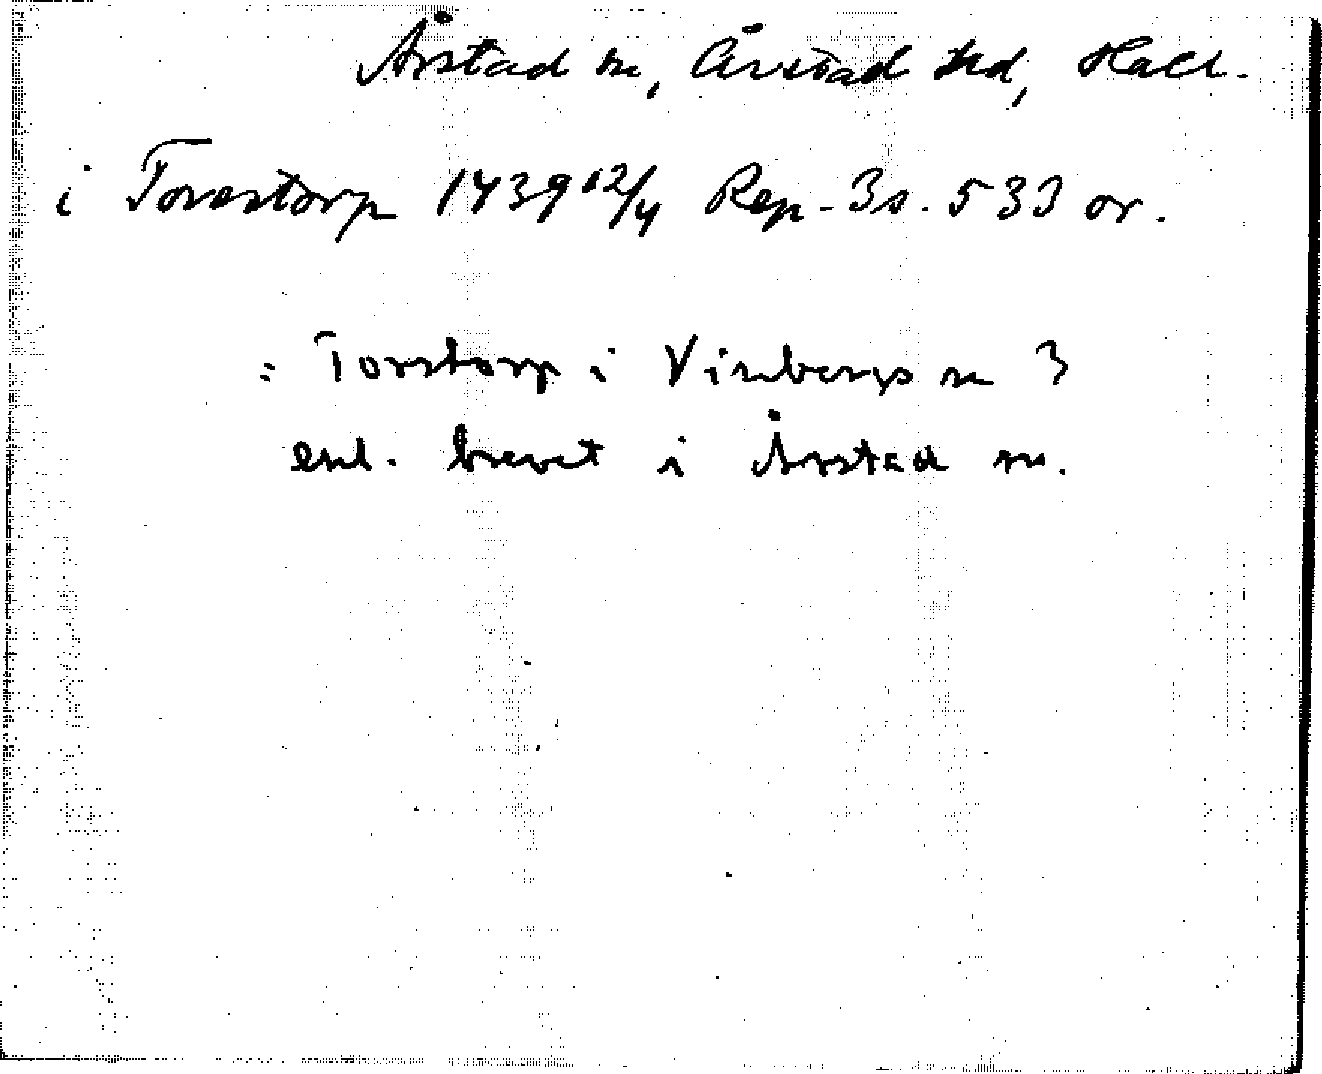 Årstad sn, Årstad hd, Hall.
i Torestorp 1439 12/4 Rep. 3 s. 533 or.
: Torstorp i Vinbergs sn ?
enl. brevet i Årstad sn.